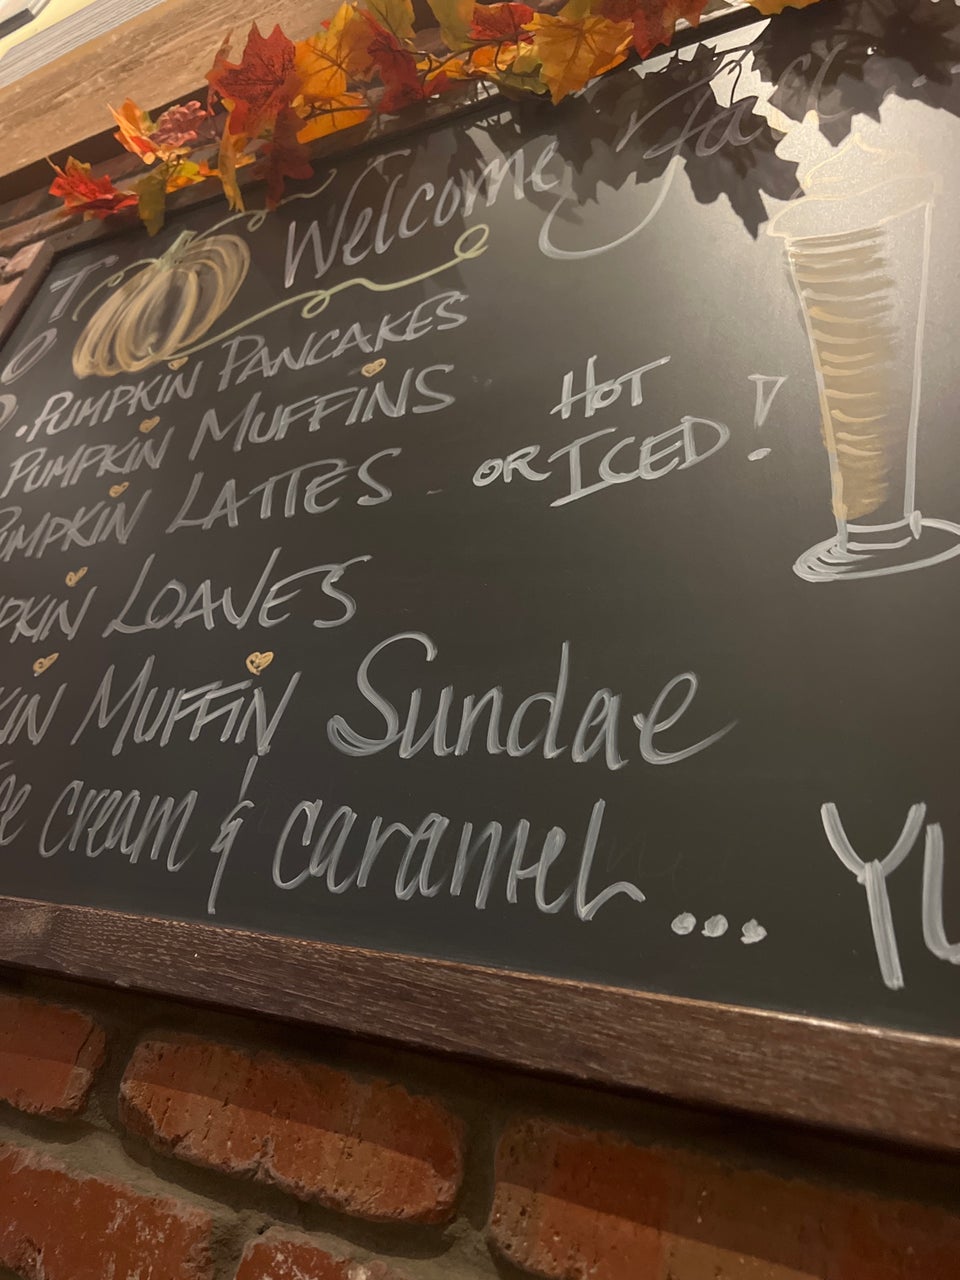 Welcome Fall
T
O
. PUMPKIN PANCAKES
PUMPKIN MUFFINS
PUMPKIN LATTES - HOT OR ICED!
PKIN LOAVES
KIN MUFFIN Sundae
cream & caramel...
YU